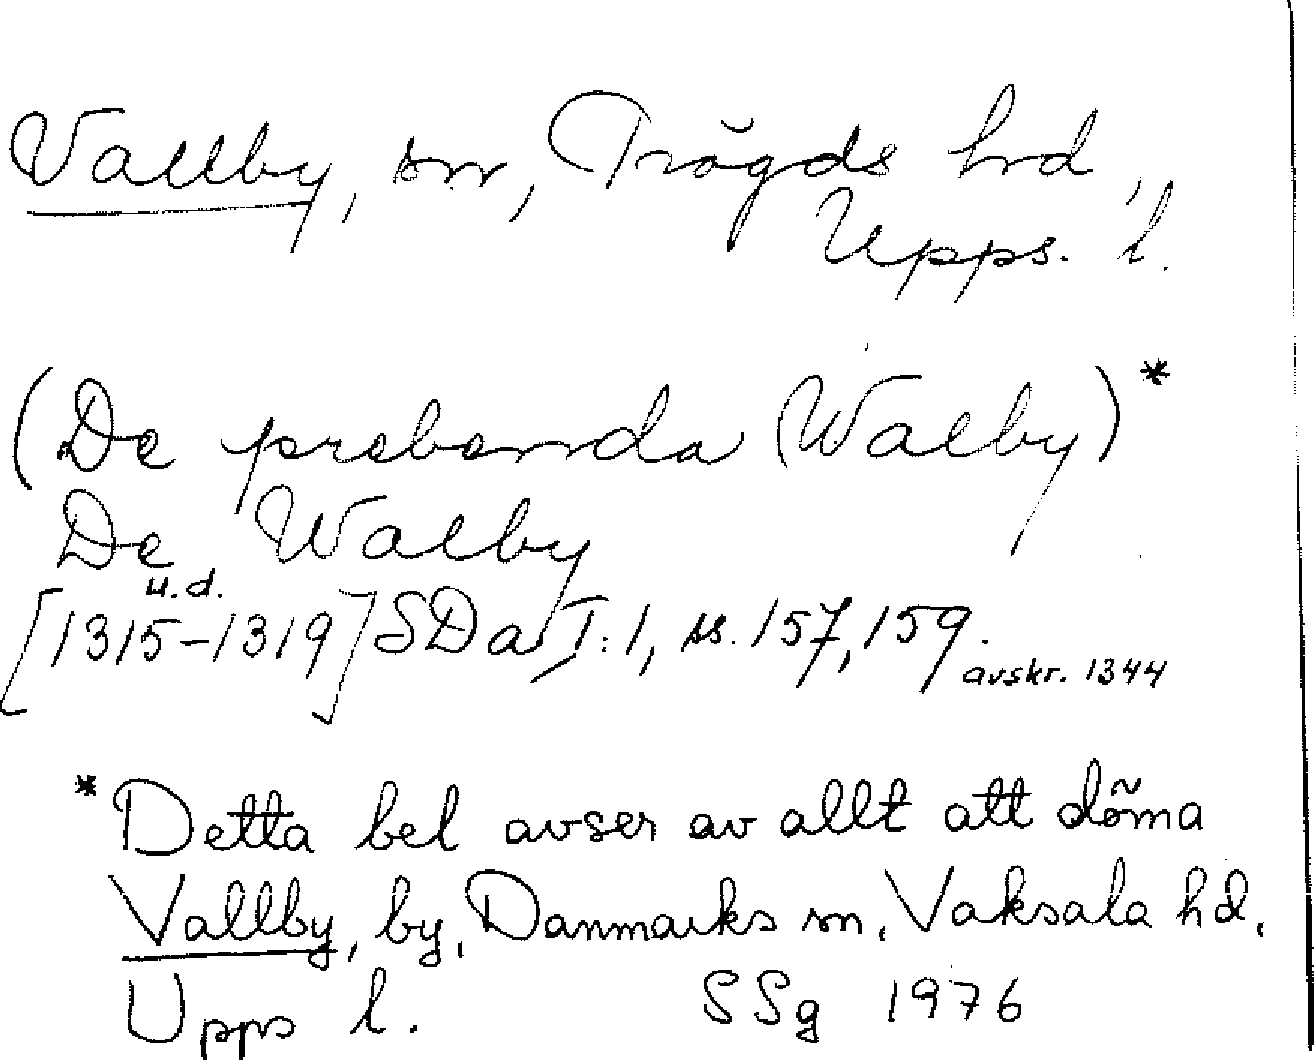 Vallby, sn, Trögds hd,
Upps. l.
(De prebenda Walby)*
De Walby
u.d.
[1315-1319] SDas I:1, ss. 157, 159.
avskr. 1344
*Detta bel avser av allt att döma
Vallby, by, Danmarks sn, Vaksala hd,
Upps l. SSg 1976